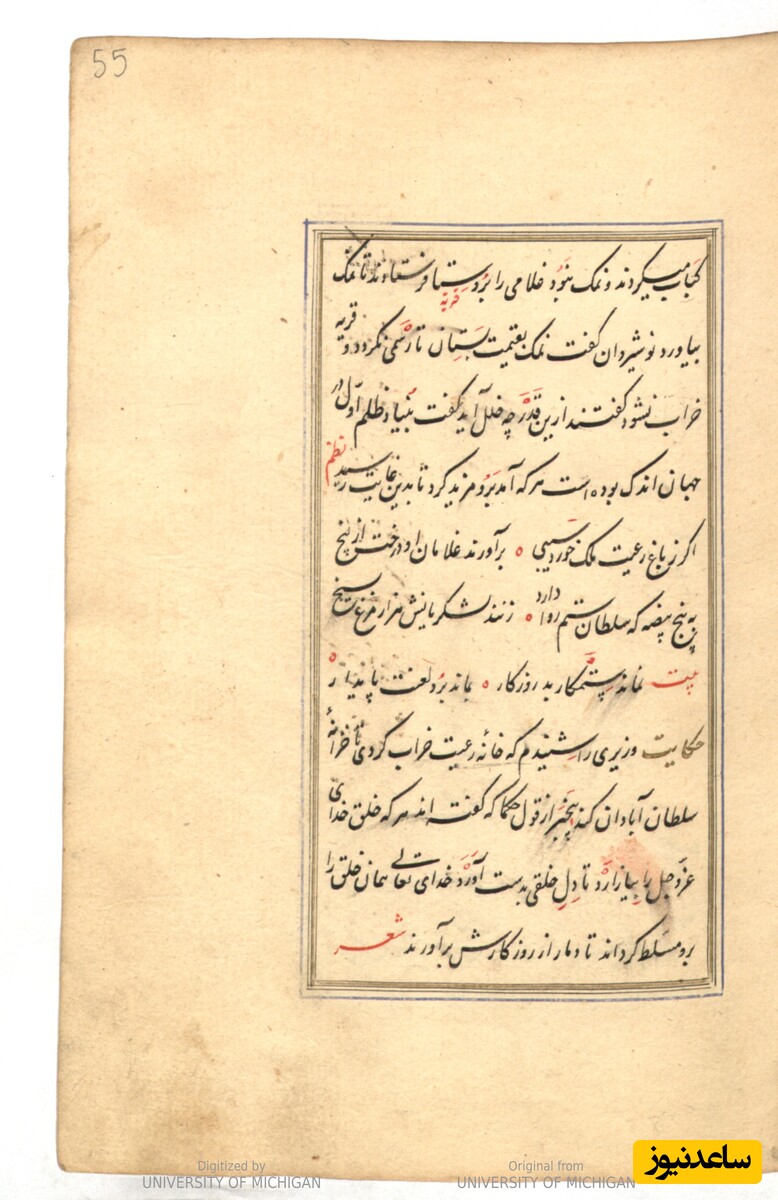 55
کباب میکردند و نمک نبود غلامی را بروستا فرستادند تا نمک
قریه
بیاورد نوشیروان گفت نمک بقیمت بستان تا رسمی نگردد و قریه
خراب نشود گفتند ازین قدر چه خلل آید گفت بنیاد ظلم اول در
جهان اندک بوده است هرکه آمد برو مزید کرد تا بدین غایت رسید
نظم
اگر ز باغ رعیت ملک خورد سیبی ٥ برآورند غلامان او درخت از بیخ
به پنج بیضه که سلطان ستم روا دارد ٥ زنند لشکریانش هزار مرغ بسیخ
بیت نماند ستمکار بد روزگار ٥ بماند برو لعنت پایدار ٥
حکایت وزیری را شنیدم که خانه رعیت خراب کردی تا خزانهٔ
سلطان آبادان کند بیخبر از قول حکما که گفته اند هرکه خلق خدای
عزوجل را بیازارد تا دل خلقی بدست آورد خدای تعالی همان خلق را
برو مسلط گرداند تا دمار از روزگارش برآورند شعر
ساعدنیوز
Digitized by
UNIVERSITY OF MICHIGAN
Original from
UNIVERSITY OF MICHIGAN